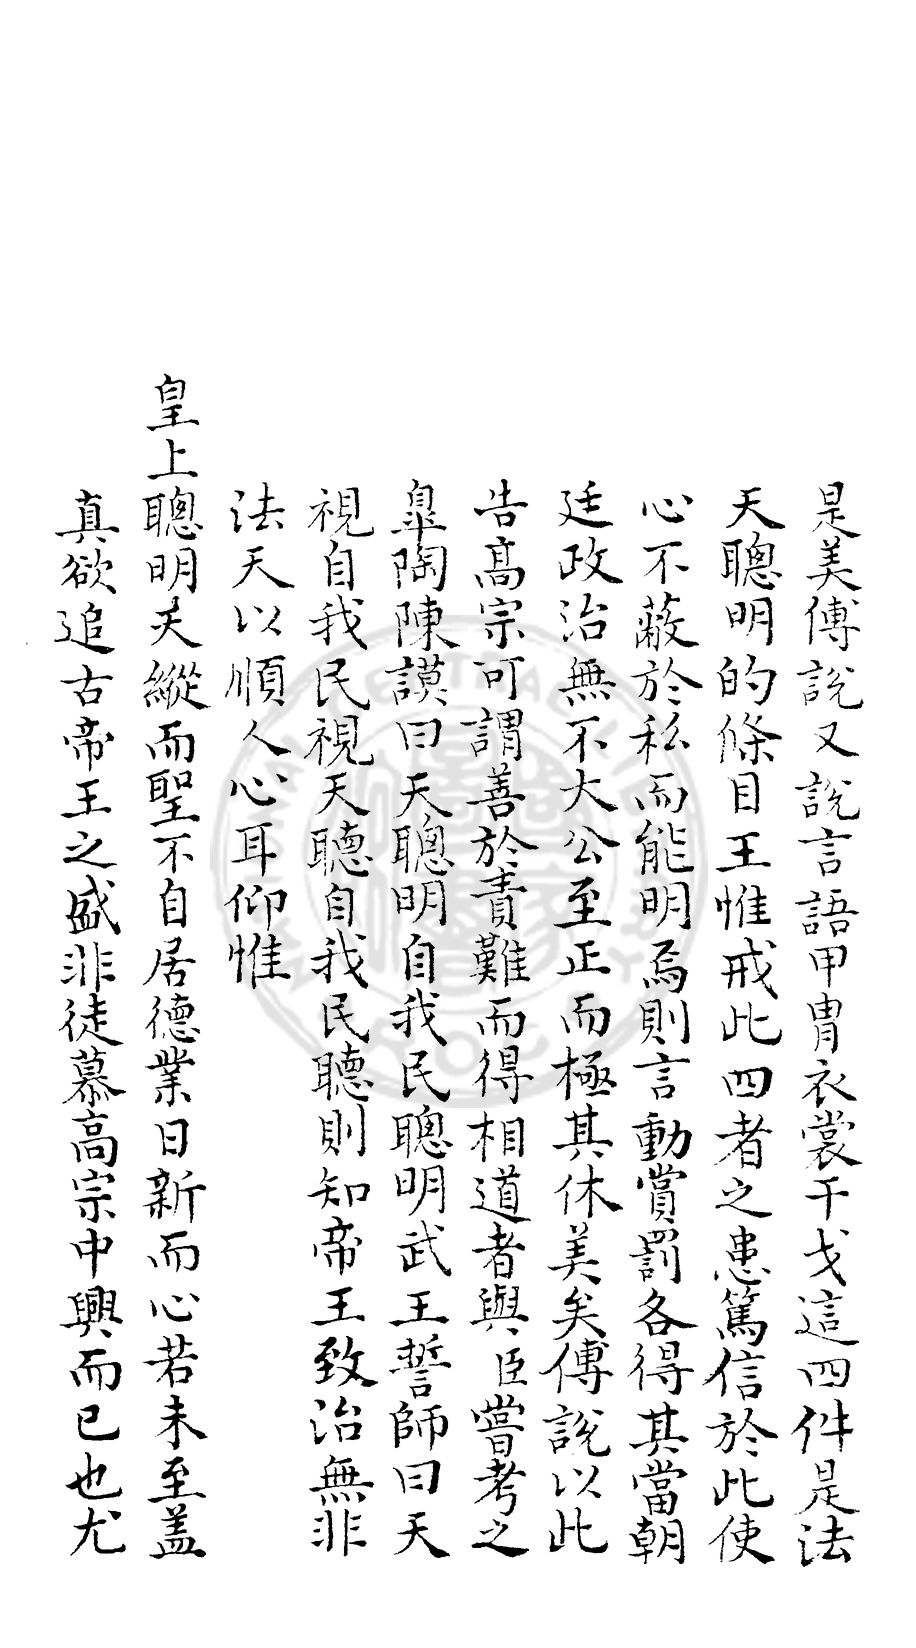 是美傅說又說言語甲冑衣裳干戈這四件是法
天聰明的條目王惟戒此四者之患篤信於此使
心不蔽於私而能明焉則言動賞罰各得其當朝
廷政治無不大公至正而極其休美矣傅說以此
告高宗可謂善於責難而得相道者與臣嘗考之
臯陶陳謨曰天聰明自我民聰明武王誓師曰天
視自我民視天聽自我民聽則知帝王致治無非
法天以順人心耳仰惟
皇上聰明天縱而聖不自居德業日新而心若未至蓋
真欲追古帝王之盛非徒慕高宗中興而已也尤